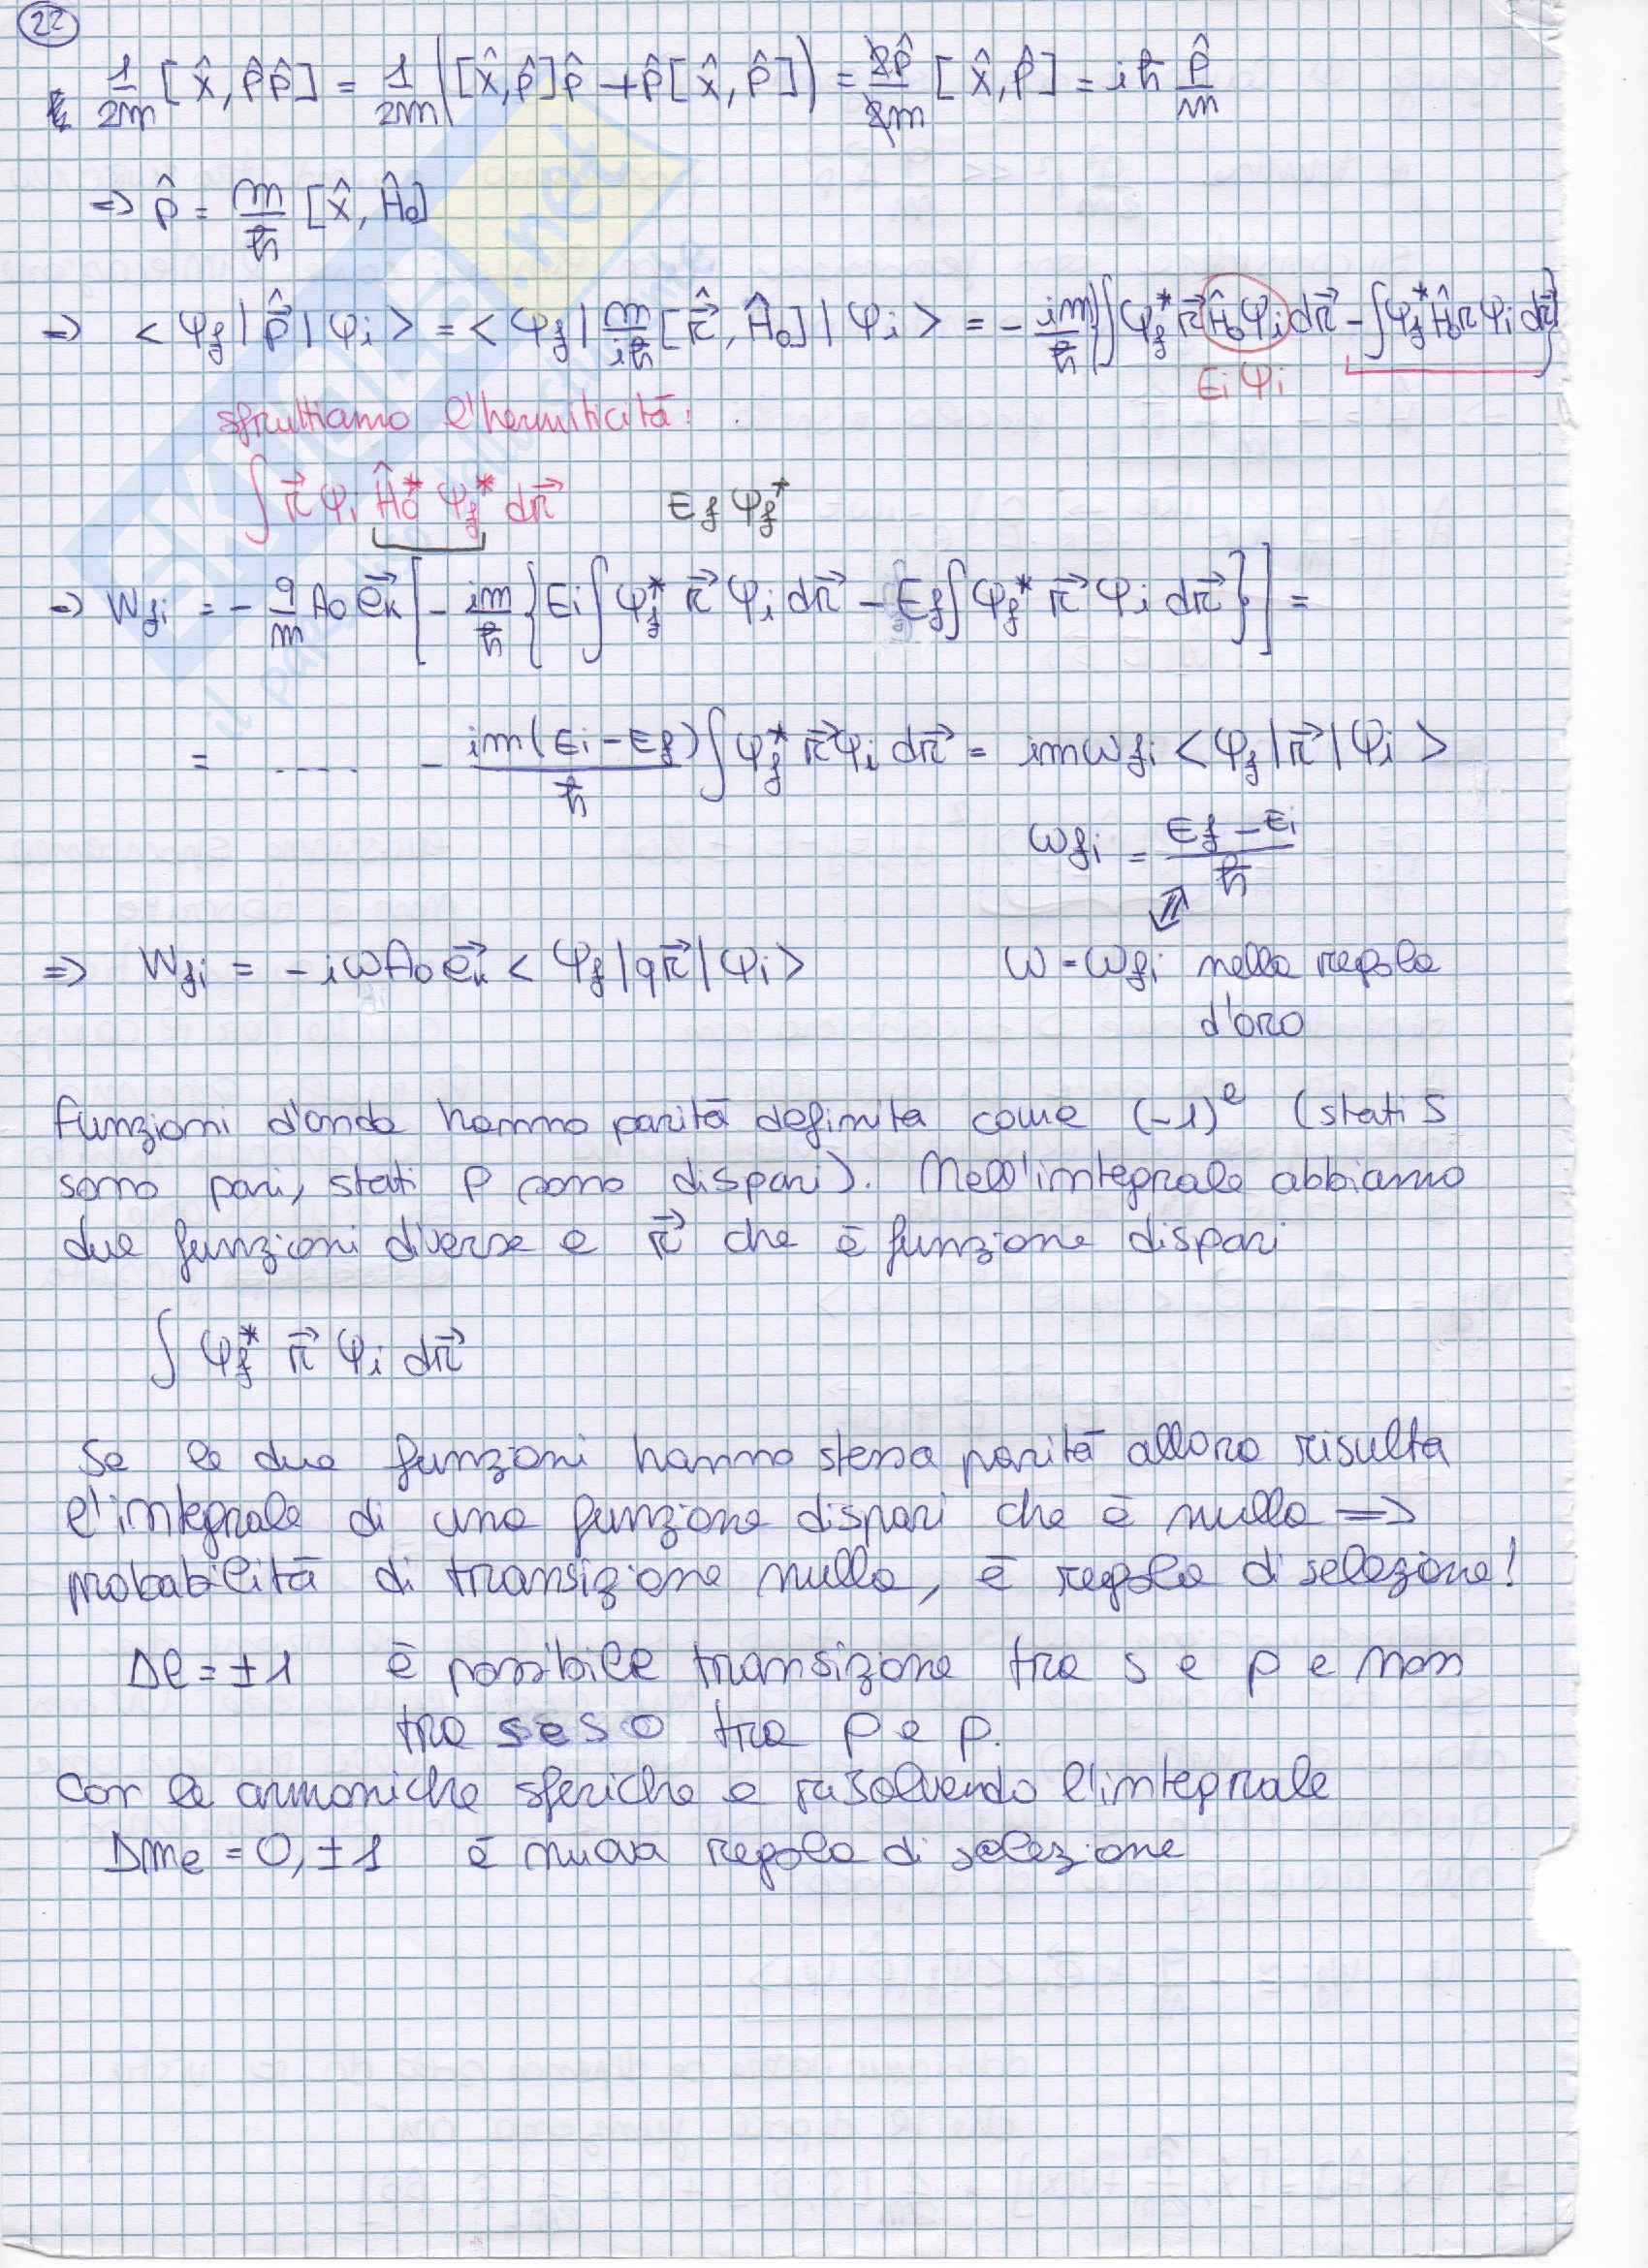 22
1/2m [x̂, p̂p̂] = 1/2m ([x̂,p̂]p̂ + p̂[x̂,p̂]) = 2p̂/2m [x̂,p̂] = iħ p̂/m
=> p̂ = m/ħ [x̂, Ĥ₀]
=> <φf| p̂⃗ |φi> = <φf| m/iħ [r̂⃗, Ĥ₀] |φi> = - im/ħ {∫φf* r⃗ Ĥ₀φi dr⃗ - ∫φf* Ĥ₀ r φi dr⃗}
Ei φi
sfruttiamo l'hermiticità:
∫ r⃗ φi Ĥ₀* φf* dr⃗ Ef φf*
=> Wfi = - q/m A₀ e⃗k [- im/ħ {Ei ∫φf* r⃗ φi dr⃗ - Ef ∫φf* r⃗ φi dr⃗}] =
= ..... - im(Ei-Ef)/ħ ∫φf* r⃗ φi dr⃗ = imωfi <φf|r⃗|φi>
ωfi = Ef-Ei/ħ
=> Wfi = -iωA₀ e⃗k <φf|qr⃗|φi> ω=ωfi nella regola
d'oro
funzioni d'onda hanno parità definita come (-1)^l (stati S
sono pari, stati p sono dispari). Nell'integrale abbiamo
due funzioni diverse e r⃗ che è funzione dispari
∫ φf* r⃗ φi dr⃗
Se le due funzioni hanno stessa parità allora risulta
l'integrale di una funzione dispari che è nullo =>
probabilità di transizione nulla, è regola di selezione!
Δl = ±1 è possibile transizione tra s e p e non
tra s e s o tra p e p.
Con le armoniche sferiche e risolvendo l'integrale
Δml = 0, ±1 è nuova regola di selezione
SKUOLA.net